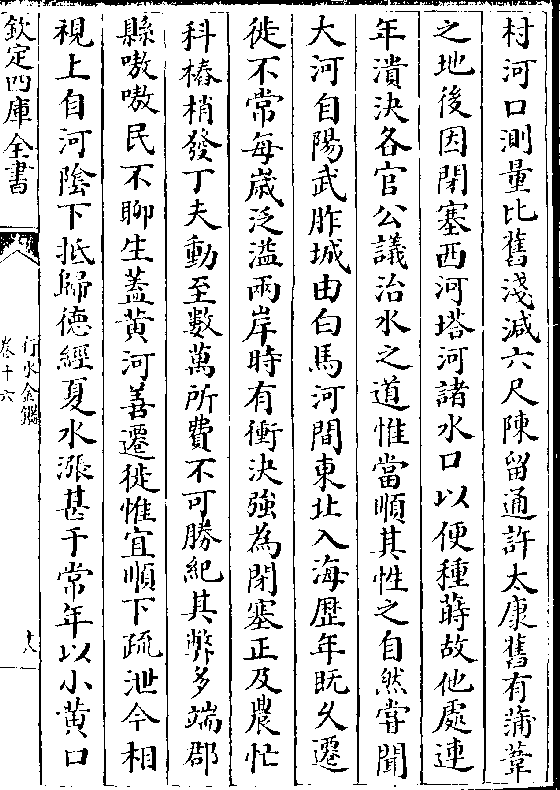 村河口測量比舊淺減六尺陳留通許太康舊有蒲葦
之地後因閉塞西河塔河諸水口以便種蒔故他處連
年潰決各官公議治水之道惟當順其性之自然嘗聞
大河自陽武胙城由白馬河間東北入海歴年既久遷
徙不常每嵗泛溢兩岸時有衝決強為閉塞正及農忙
科樁梢發丁夫動至數萬所費不可勝紀其弊多端郡
縣嗷嗷民不聊生蓋黄河善遷徙惟宜順下疏泄今相
視上自河隂下抵歸徳經夏水漲甚于常年以小黄口
欽定四庫全書
行水金鑑
卷十六